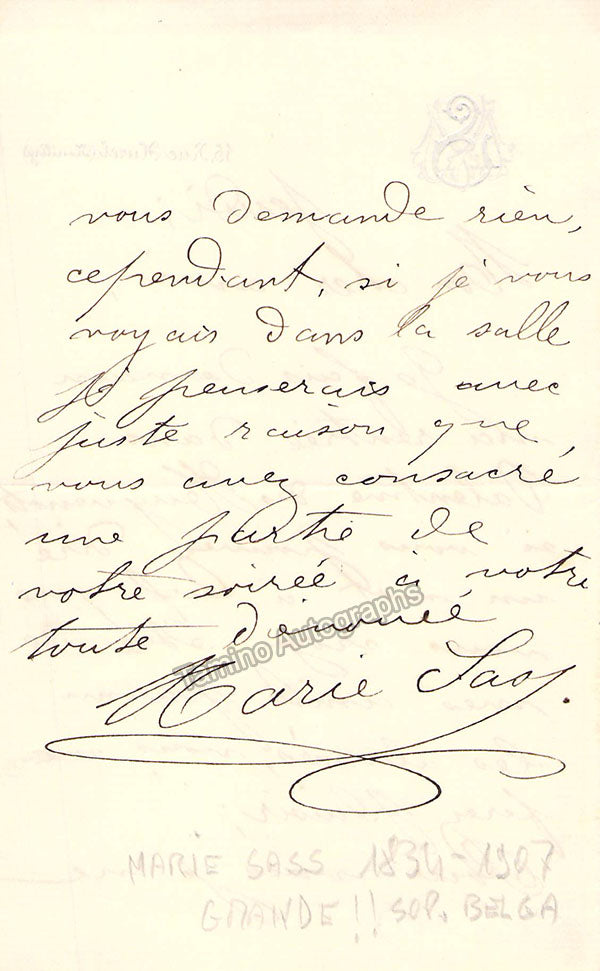 vous demande rien,
cependant, si je vous
voyais dans la salle
je penserais avec
juste raison que,
vous avez consacré
une partie de
votre soirée à votre
toute dévouée
Marie Sass.
Tamino Autographs
MARIE SASS 1834-1907
GRANDE!! SOP. BELGA